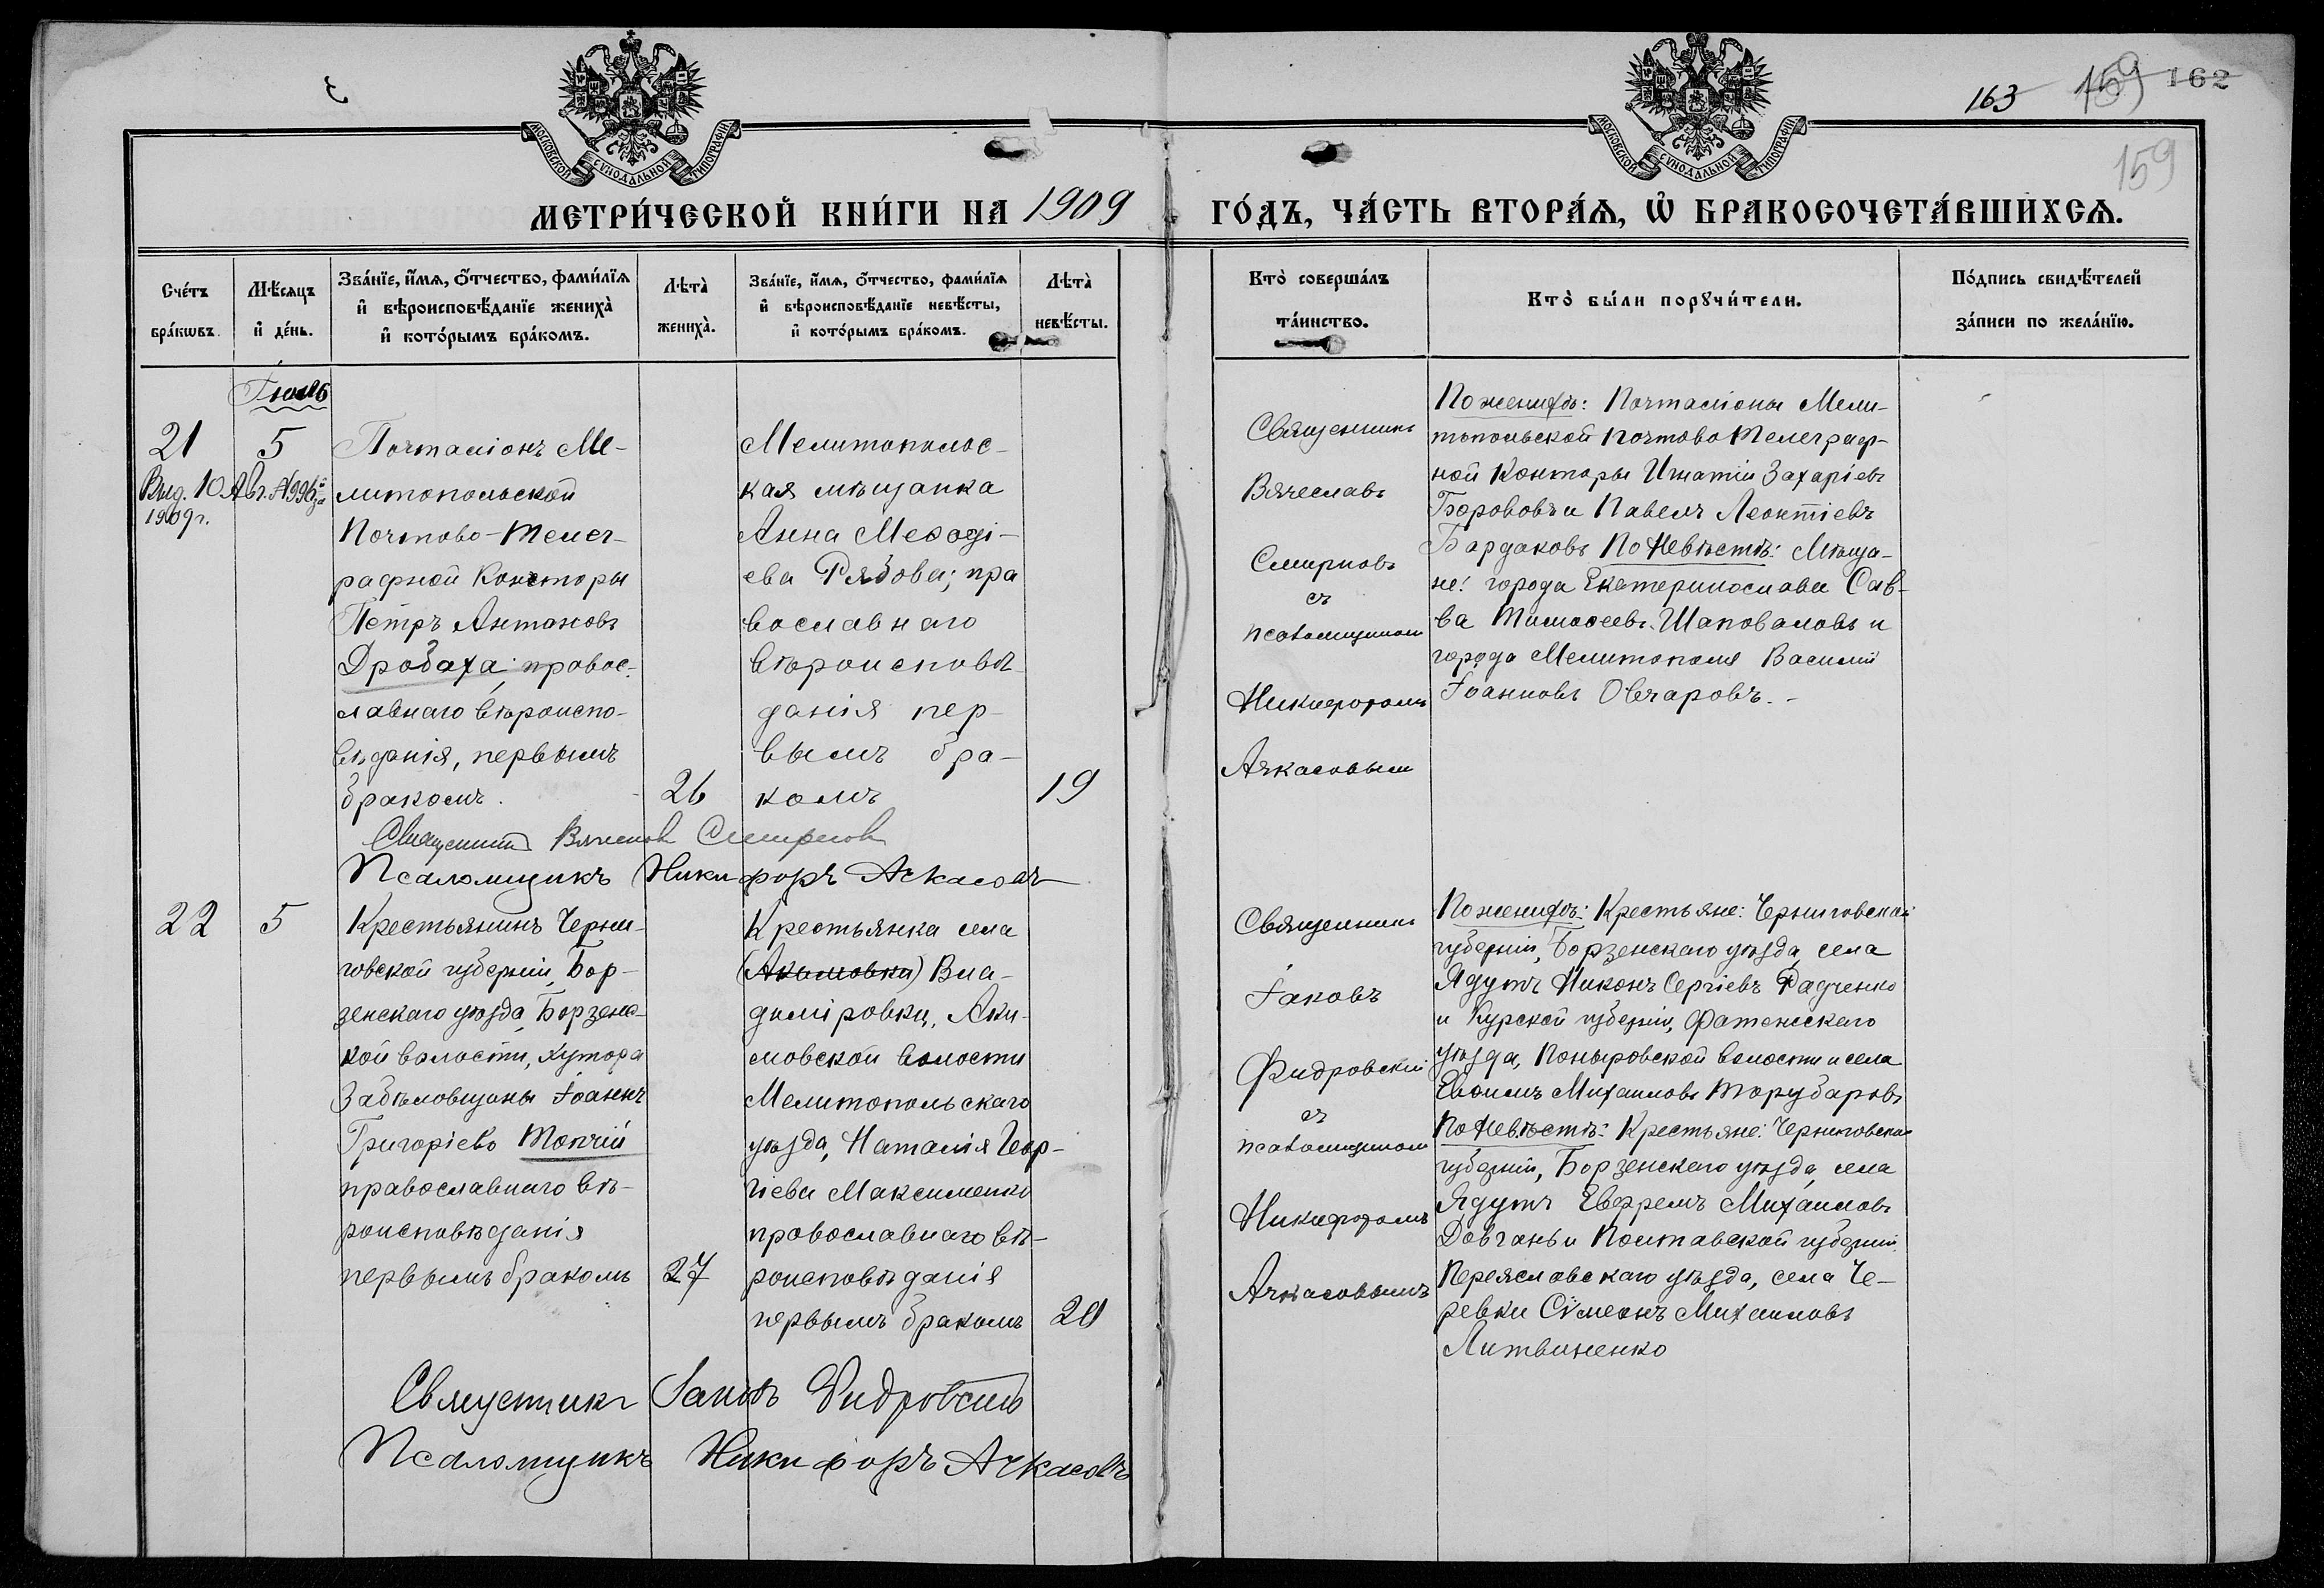 163 159 162
159
МОСКОВСКОЙ СѴНОДАЛЬНОЙ ТИПОГРАФІИ
МОСКОВСКОЙ СѴНОДАЛЬНОЙ ТИПОГРАФІИ
МЕТРИ́ЧЕСКОЙ КНИ́ГИ НА 1909 ГО́ДЪ, ЧА́СТЬ ВТОРА́Ѧ, Ѡ҆ БРАКОСОЧЕТА́ВШИХСѦ.
Сче́тъ
бра́кѡвъ.
Мѣ́сяцъ
и҆ де́нь.
Зва́нїе, и҆́мѧ, ѻ҆́тчество, фами́лїѧ
и҆ вѣроисповѣ́данїе жениха̀
и҆ кото́рымъ бра́комъ.
Лѣта̀
жениха̀.
Зва́нїе, и҆́мѧ, ѻ҆́тчество, фами́лїѧ
и҆ вѣроисповѣ́данїе невѣ́сты,
и҆ кото́рымъ бра́комъ.
Лѣта̀
невѣ́сты.
Кто̀ соверша́лъ
та́инство.
Кто̀ бы́ли порꙋчи́тели.
По́дпись свидѣ́телей
за́писи по жела́нїю.
Іюль
21
Выд. 10 Авг. №996
1909г.
5
Почталіонъ Ме-
литопольской
Почтово-Телег-
рафной Конторы
Петръ Антоновъ
Дробаха, правос-
лавнаго вѣроиспо-
вѣданія, первымъ
бракомъ.
26
Мелитопольс-
кая мѣщанка
Анна Меѳоді-
ева Рябова; пра
вославнаго
вѣроисповѣ-
данія пер-
вымъ бра-
комъ
19
Священникъ Вячеслав Смирнов
Псаломщикъ Никифоръ Ачкасовъ
Священникъ
Вячеславъ
Смирновъ
съ
псаломщикомъ
Никифоромъ
Ачкасовым
По женихѣ: Почталіоны Мели-
топольской Почтово Телеграф-
ной Конторы Игнатій Захаріевъ
Борововъ и Павелъ Леонтіевъ
Бардаковъ По Невѣстѣ: Мѣща-
не: города Екатеринослава Сав-
ва Тимоѳеевъ Шаповаловъ и
города Мелитополя Василій
Іоанновъ Овчаровъ.-
22
5
Крестьянинъ Черни-
говской губерніи, Бор-
зенскаго уѣзда, Борзенс-
кой волости, хутора
Забѣловщины Іоаннъ
Григоріевъ Топчій
православнаго вѣ-
роисповѣданія
первымъ бракомъ
27
Крестьянка села
(Акимовки) Вла-
диміровки, Аки-
мовской волости
Мелитопольскаго
уѣзда, Наталія Геор-
гіева Максименко
православнаго вѣ-
роисповѣданія
первымъ бракомъ
20
Священникъ Іаковъ Фидровскій
Псаломщикъ Никифоръ Ачкасовъ
Священникъ
Іаковъ
Фидровскій
съ
псаломщикомъ
Никифоромъ
Ачкасовымъ
По женихѣ: Крестьяне: Черниговской
губерніи, Борзенскаго уѣзда, села
Ядутъ Никонъ Сергіевъ Радченко
и Курской губерніи, Фатежскаго
уѣзда, Поныровской волости и села
Евѳимъ Михаиловъ Торубаровъ
По Невѣстѣ: Крестьяне: Черниговской
губерніи, Борзенскаго уѣзда, села
Ядутъ Евфремъ Михаиловъ
Довгань и Полтавской губерніи
Переяславскаго уѣзда, села Че-
ревки Сѵмеонъ Михаиловъ
Литвиненко